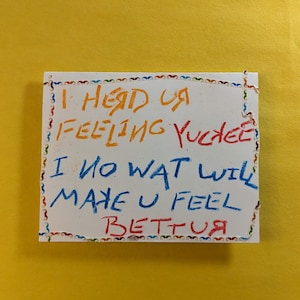 I HERD UR
FEELING YUCKEE
I NO WAT WILL
MAKE U FEEL
BETTUR